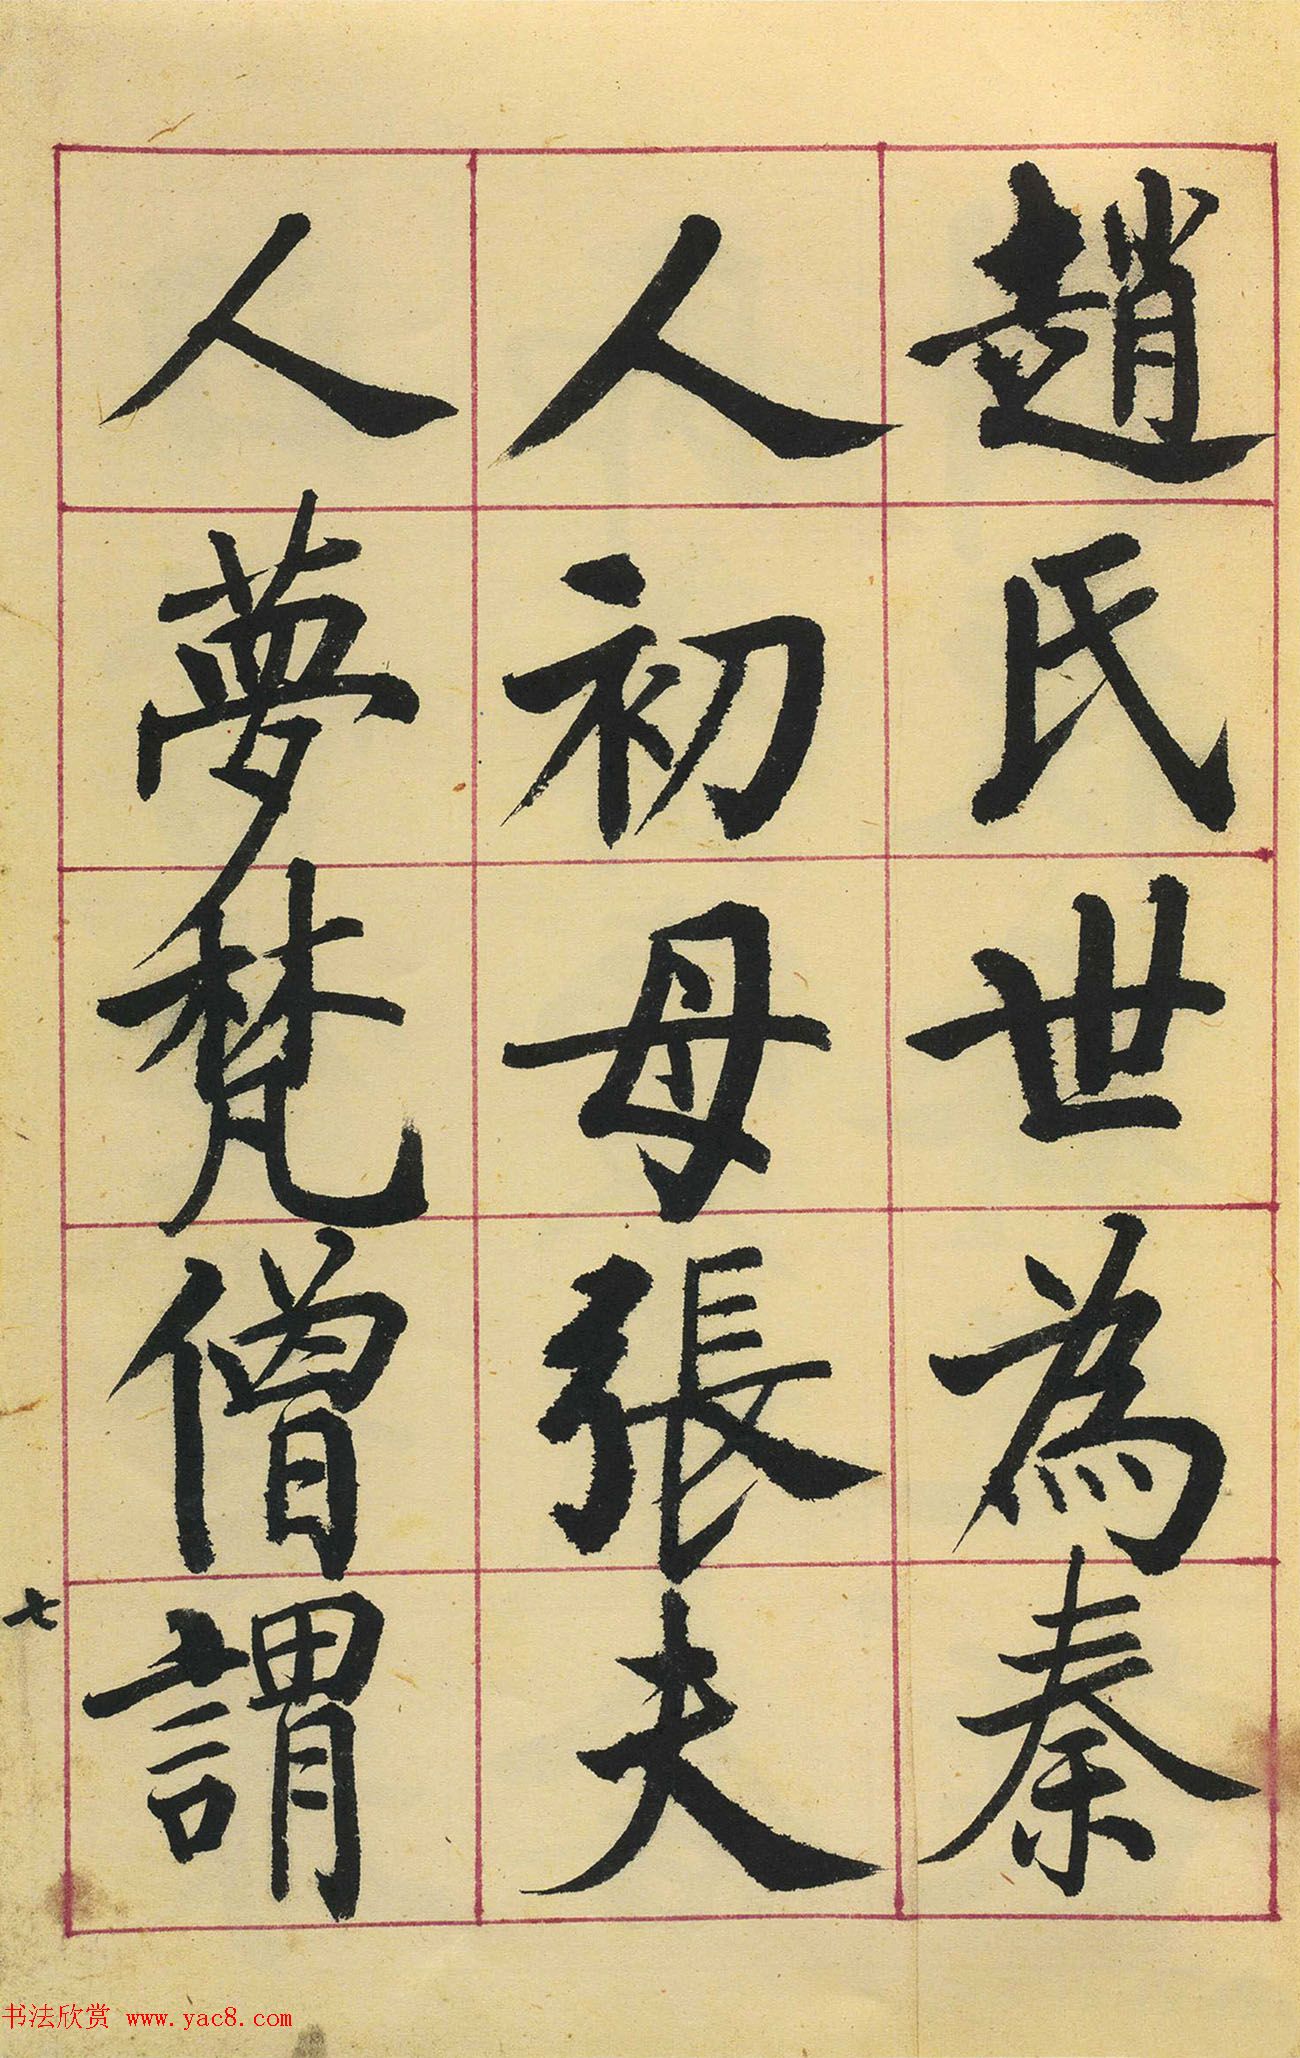 趙氏世為秦
人初母張夫
人夢梵僧謂
七
书法欣赏 www.yac8.com